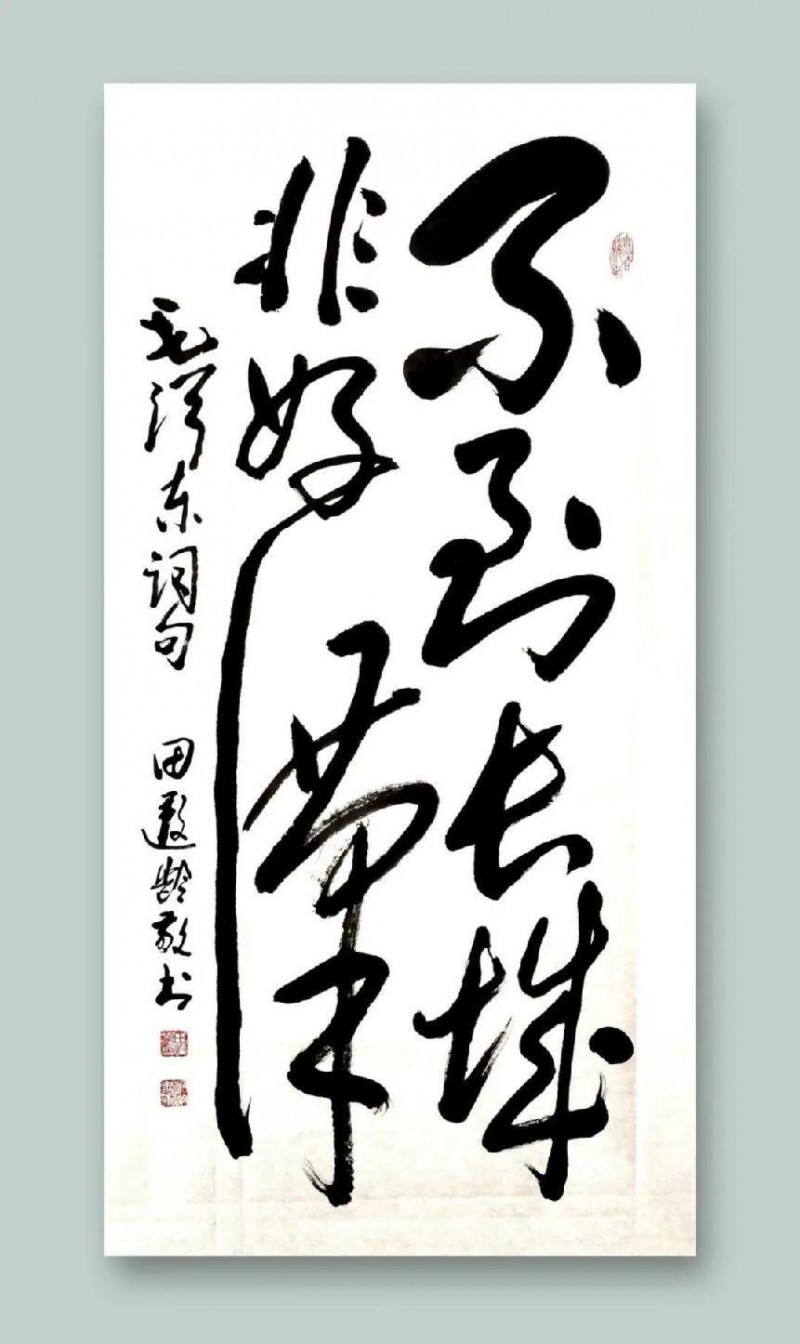 不到长城
非好漢
毛泽东词句 田遐龄敬书